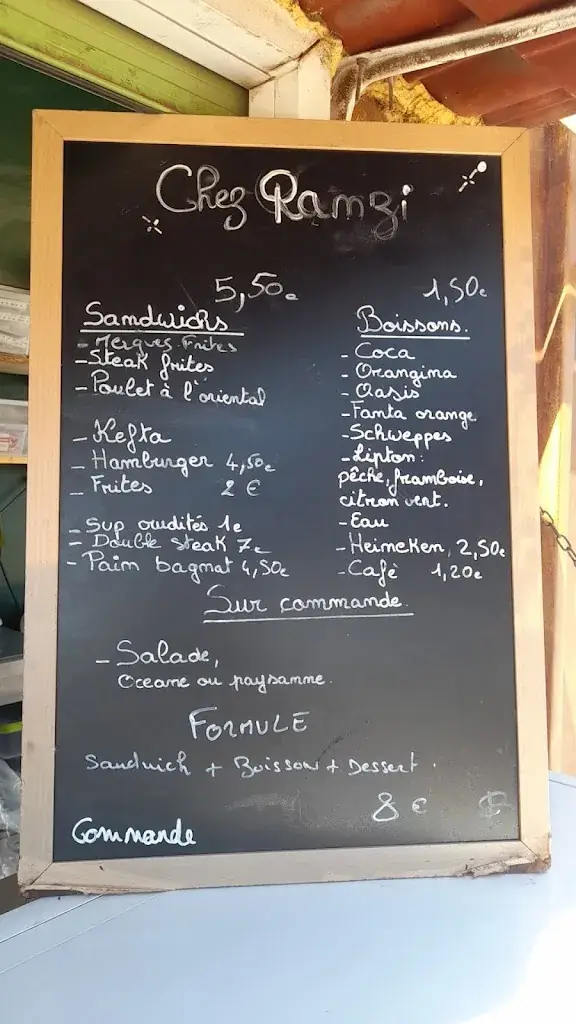 Chez Ramzi
5,50e
Sandwichs
- Mergues Frites
- Steak frites
- Poulet à l'oriental
- Kefta
- Hamburger 4,50e
- Frites 2 €
- Sup crudités 1e
- Double steak 7e
- Pain bagnat 4,50e
1,50e
Boissons.
- Coca
- Orangina
- Oasis
- Fanta orange
- Schweppes
- Lipton:
pêche, framboise,
citron vert.
- Eau
- Heineken, 2,50e
- Cafè 1,20e
Sur commande.
- Salade,
Oceane ou paysanne.
FORMULE
Sandwich + Boisson + Dessert.
8 €
Commande